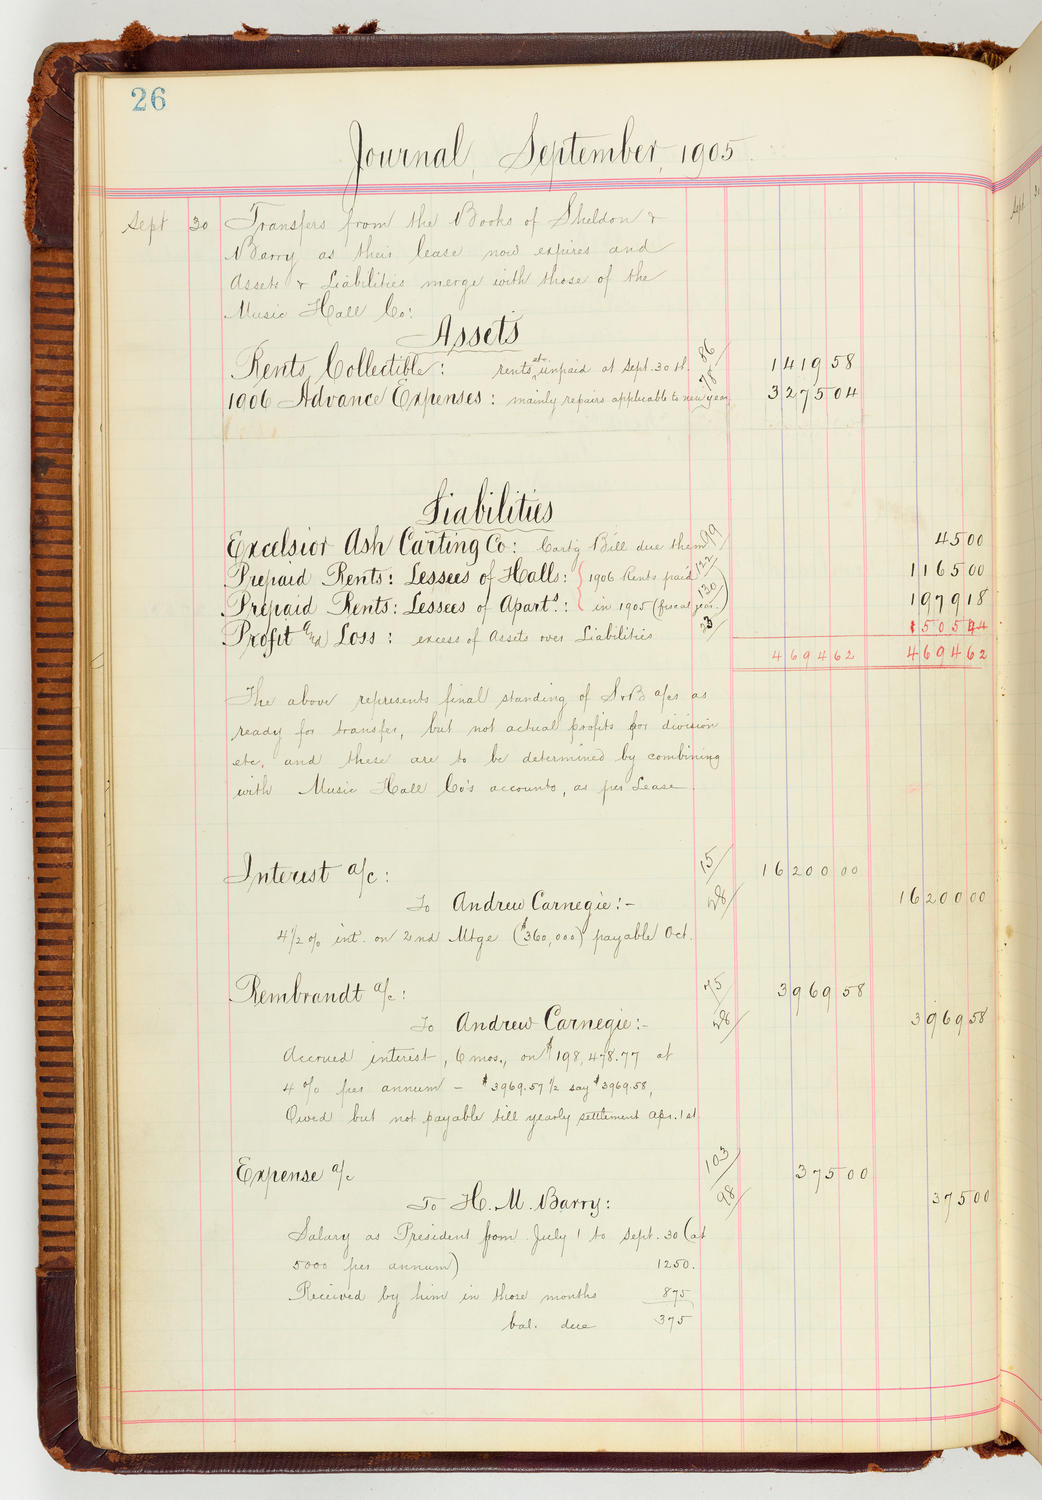 26
Journal, September, 1905
Sept 30 Transfers from the Books of Sheldon &
Barry as their lease now expires and
Assets & Liabilities merge with those of the
Music Hall Co:
Assets
Rents Collectible: rents etc. unpaid at Sept. 30th. 86/ 1419 58
1906 Advance Expenses: mainly repairs applicable to new year 78/ 3275 04
Liabilities
Excelsior Ash Carting Co: Cart'g Bill due them 99/ 45 00
Prepaid Rents: Lessees of Halls: { 1906 Rents paid 122/ 1165 00
Prepaid Rents: Lessees of Aparts.: in 1905 (fiscal year.) 130/ 1979 18
Profit and Loss: excess of Assets over Liabilities 23/ 1505 44
4694 62 4694 62
The above represents final standing of S & B a/cs as
ready for transfer, but not actual profits for division
etc, and these are to be determined by combining
with Music Hall Co's accounts, as per Lease.
Interest a/c: 15/ 16200 00
To Andrew Carnegie:- 28/ 16200 00
4 1/2 % int. on 2nd Mtge ($360,000) payable Oct.
Rembrandt a/c: 75/ 3969 58
To Andrew Carnegie:- 28/ 3969 58
Accrued interest, 6 mos., on $198,478.77 at
4 % per annum – $3969.57 1/2 say $3969.58,
Owed but not payable till yearly settlement Apr. 1st
Expense a/c 103/ 375 00
To H. M. Barry: 98/ 375 00
Salary as President from July 1 to Sept. 30 (at
5000 per annum) 1250.
Received by him in those months 875
bal. due 375
Sept 30